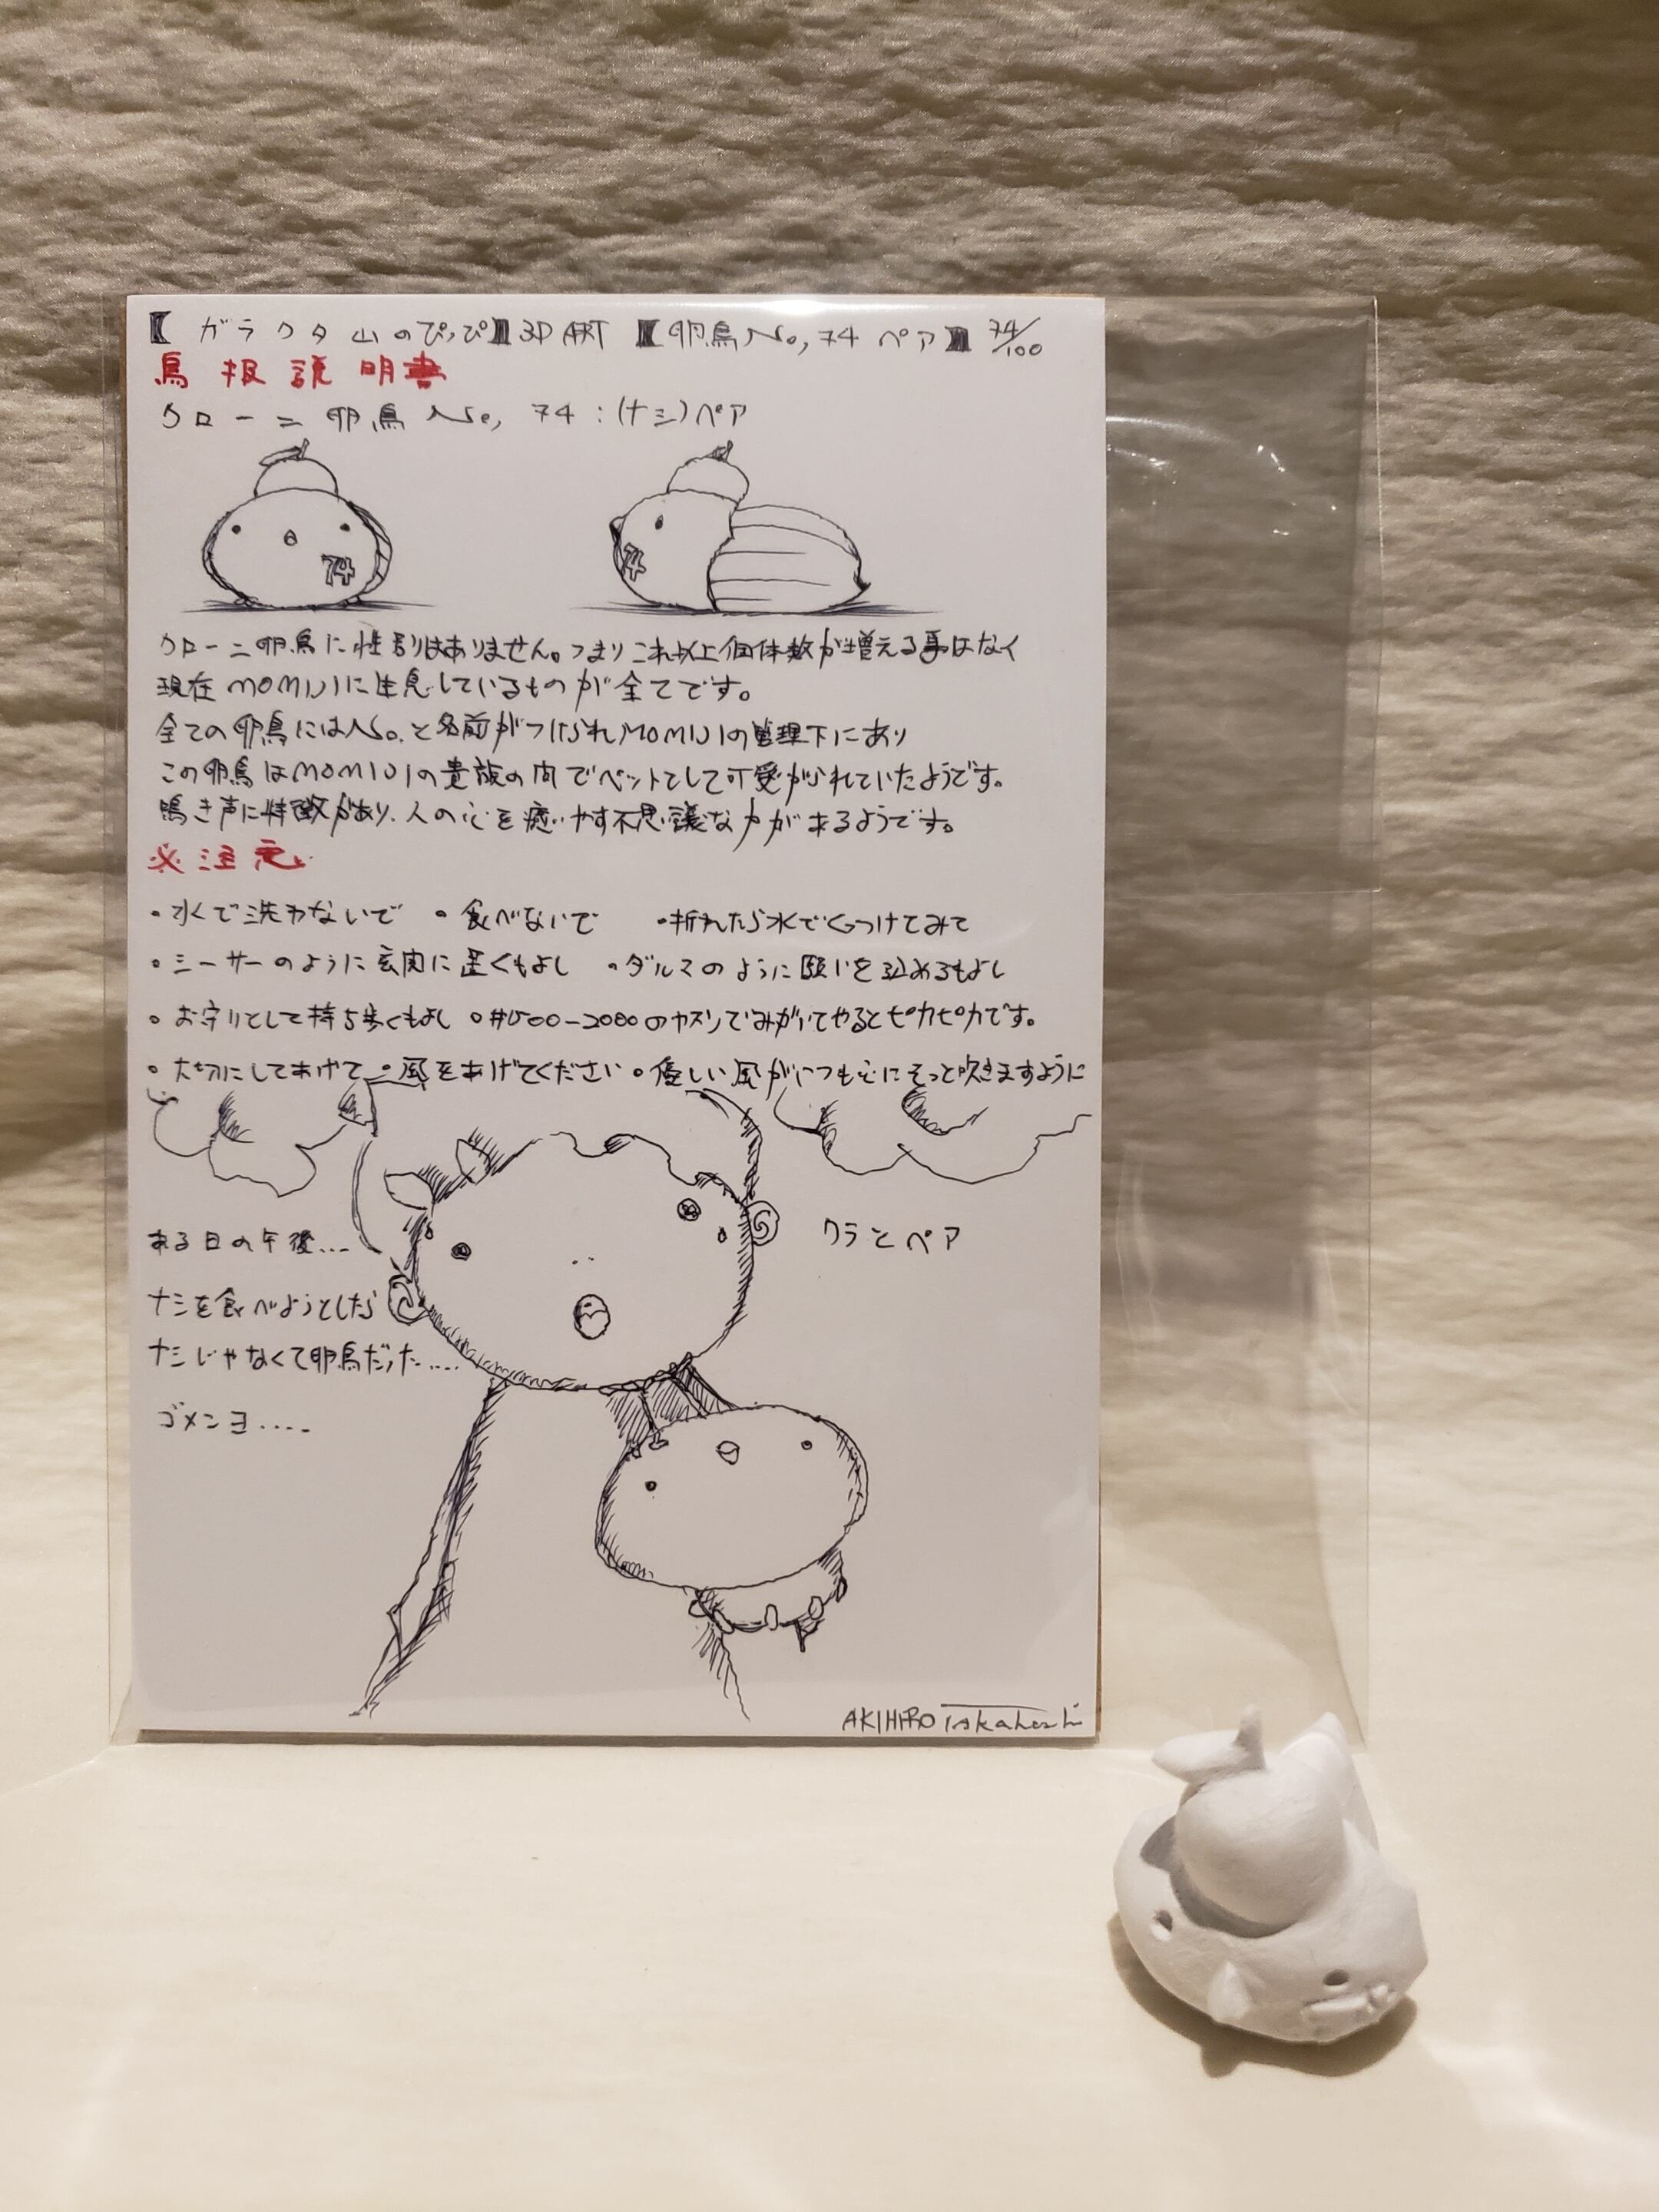 【ガラクタ山のぴっぴ】3D ART 【卵鳥No,74 ペア】 74/100
鳥扱説明書
クローン卵鳥No, 74:(ナシ)ペア
74
74
クローン卵鳥に性別はありません。つまりこれ以上個体数が増える事はなく
現在MOMIJIに生息しているものが全てです。
全ての卵鳥にはNo.と名前がつけられMOMIJIの管理下にあり
この卵鳥はMOMIJIの貴族の間でペットとして可愛がられていたようです。
鳴き声に特徴があり、人の心を癒やす不思議な力があるようです。
※注意
・水で洗わないで ・食べないで ・折れたら水でくっつけてみて
・シーサーのように玄関に置くもよし ・ダルマのように願いを込めるもよし
・お守りとして持ち歩くもよし ・#1500-2000のヤスリでみがいてやるとピカピカです。
・大切にしてあげて ・風をあげてください ・優しい風がいつも心にそっと吹きますように
ある日の午後...
クラとペア
ナシを食べようとしたら
ナシじゃなくて卵鳥だった....
ゴメンヨ....
AKIHIRO Takahashi